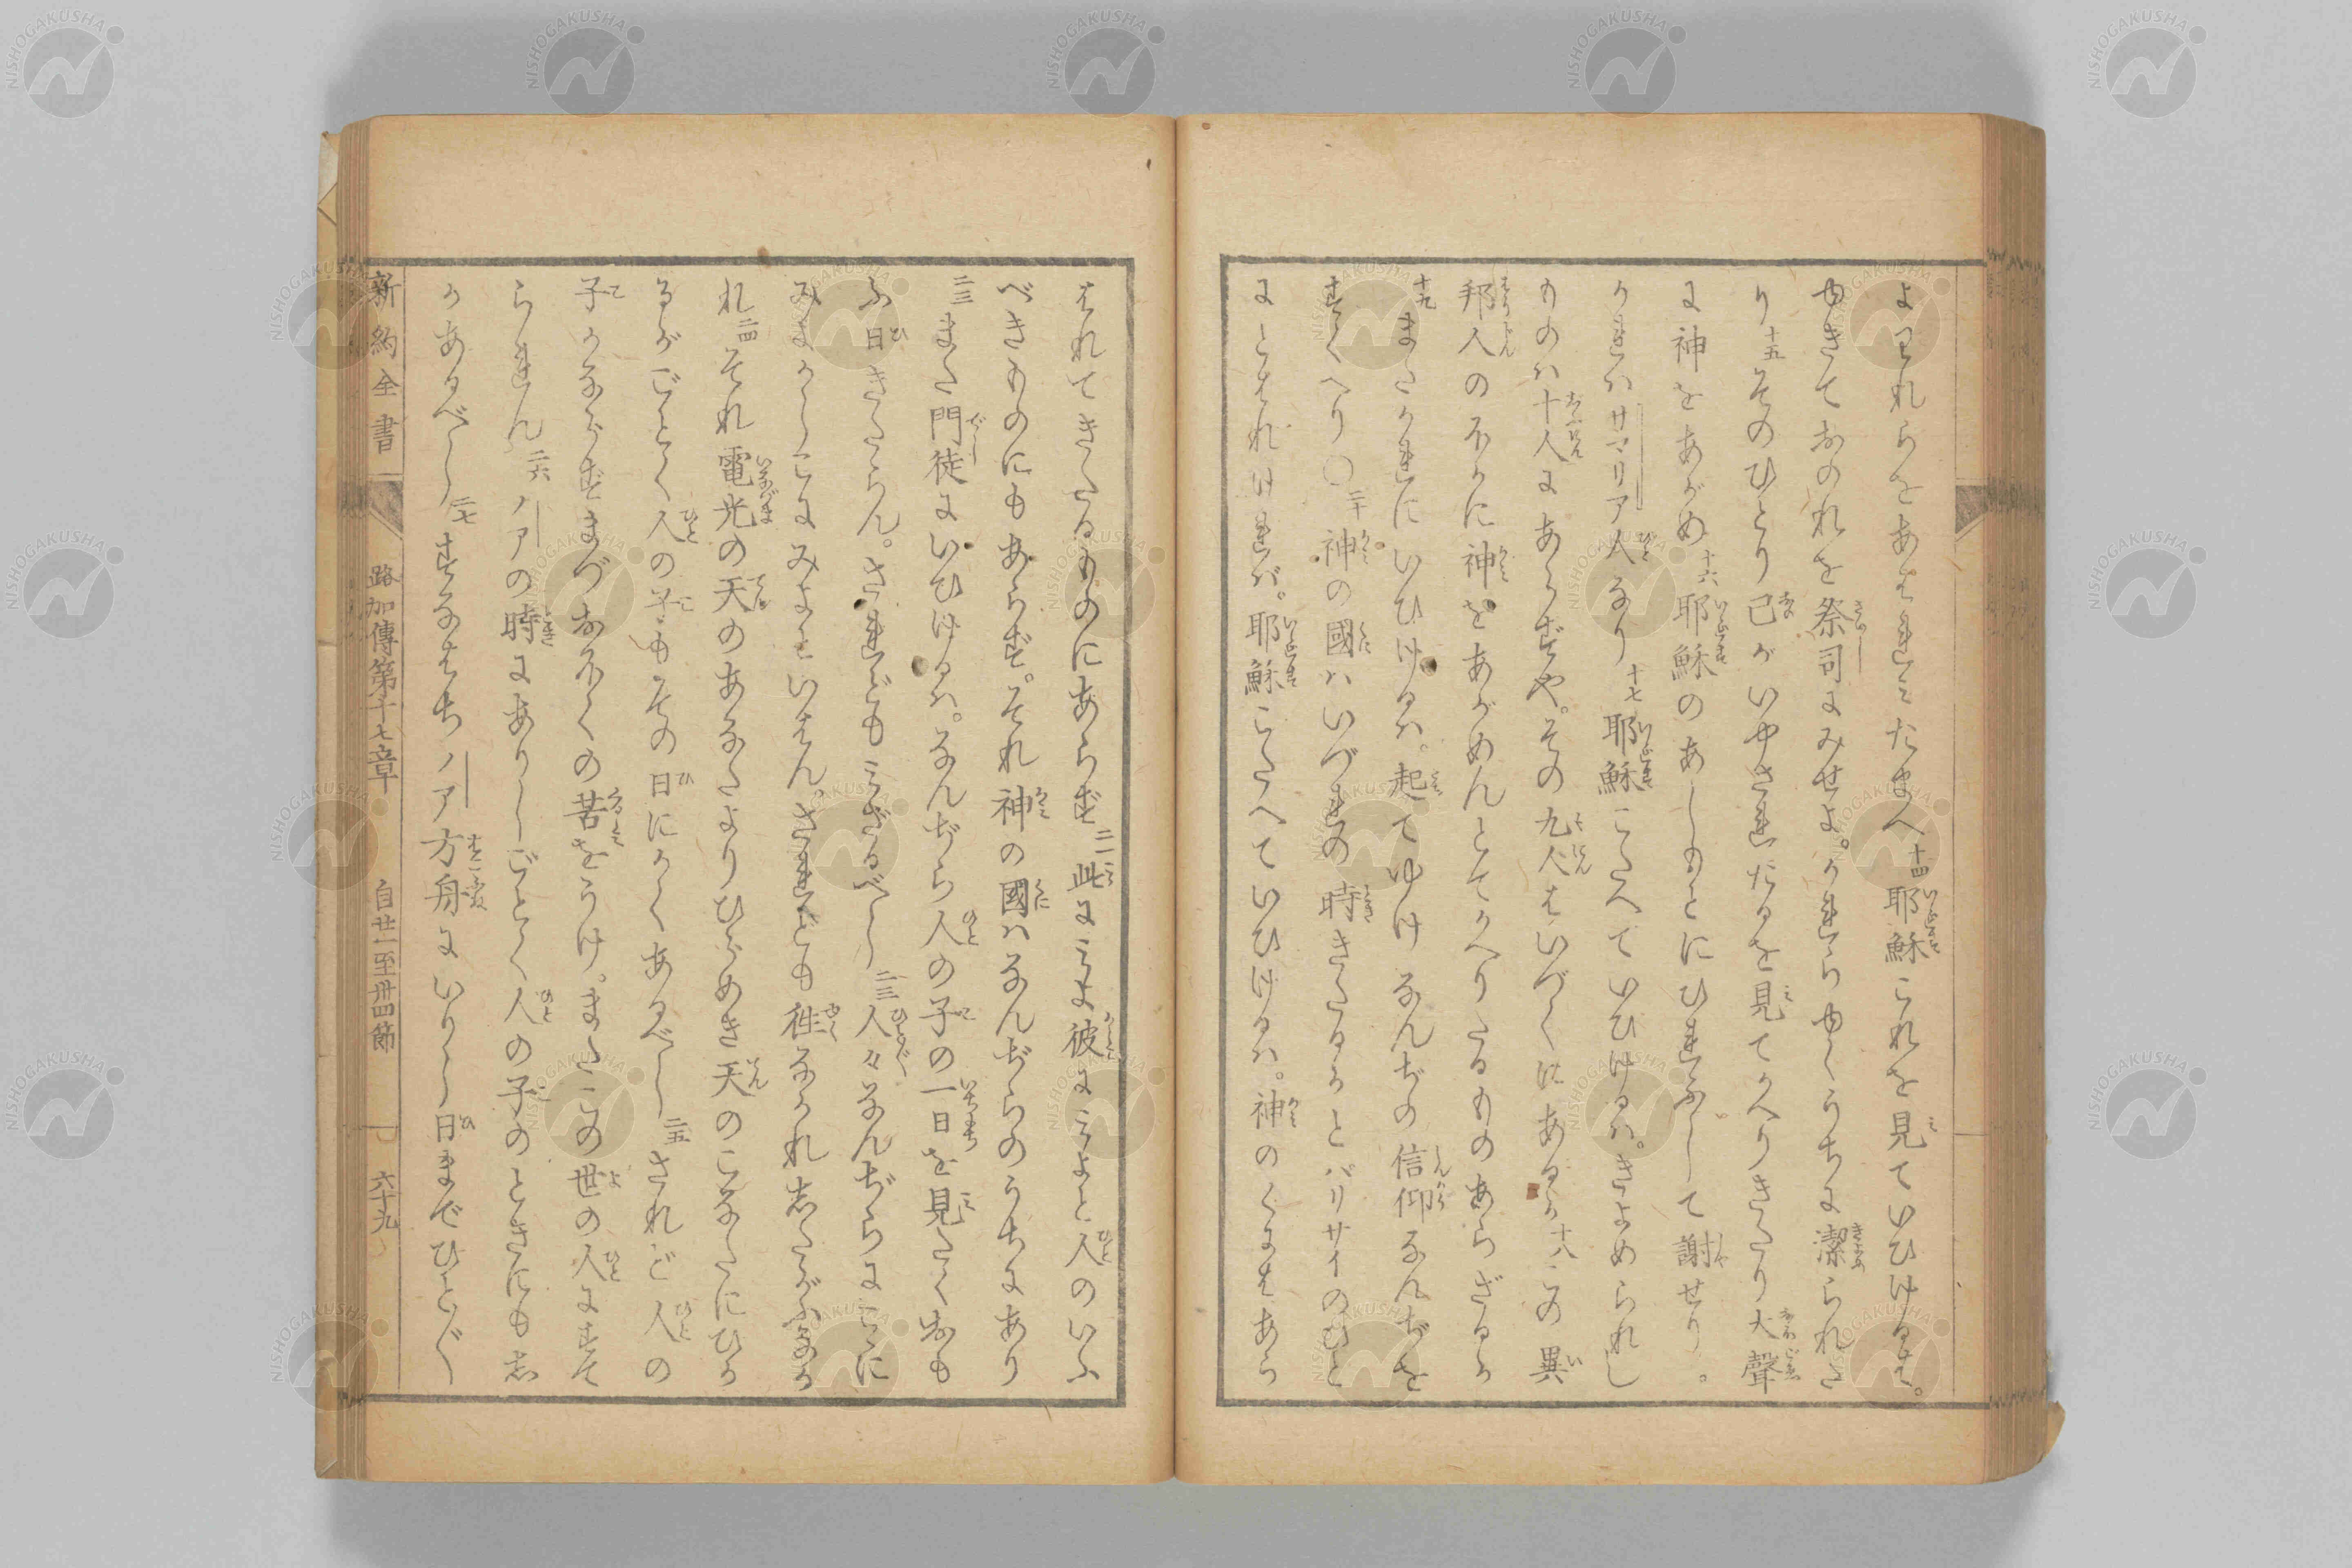 よわれらをあはれミたまへ十四耶穌これを見ていひけるは。
ゆきておのれを祭司にみせよ。かれらゆくうちに潔られた
り十五そのひとり己がいやされたるを見てかへりきたり大聲
に神をあがめ十六耶穌のあしもとにひれふして謝せり。
かれハサマリア人なり十七耶穌こたへていひけるハ。きよめられし
ものハ十人にあらずや。その九人はいづくにあるか十八この異
邦人のほかに神をあがめんとてかへりたるものあらざるか
十九またかれにいひけるハ。起てゆけなんぢの信仰なんぢを
すくへり〇二十神の國ハいづれの時きたるかとパリサイのひと
にとはれければ。耶穌こたへていひけるハ。神のくにはあら
はれてきたるものにあらず二一此にミよ彼にミよと人のいふ
べきものにもあらず。それ神の國ハなんぢらのうちにあり
二二また門徒にいひけるハ。なんぢら人の子の一日を見たくおも
ふ日きたらん。されどもミざるべし二三人々なんぢらにこゝに
みよかしこにみよといはん。されども徃なかれ志たがふなか
れ二四それ電光の天のあなたよりひらめき天のこなたにひか
るがごとく人の子もその日にかくあるべし二五されど人の
子かならずまづおほくの苦をうけ。またこの世の人にすて
られん二六ノアの時にありしごとく人の子のときにも志
かあるべし二七すなはちノア方舟にいりし日までひとゞ
新約全書
路加傳第十七章
自廿一至卅四節
六十九